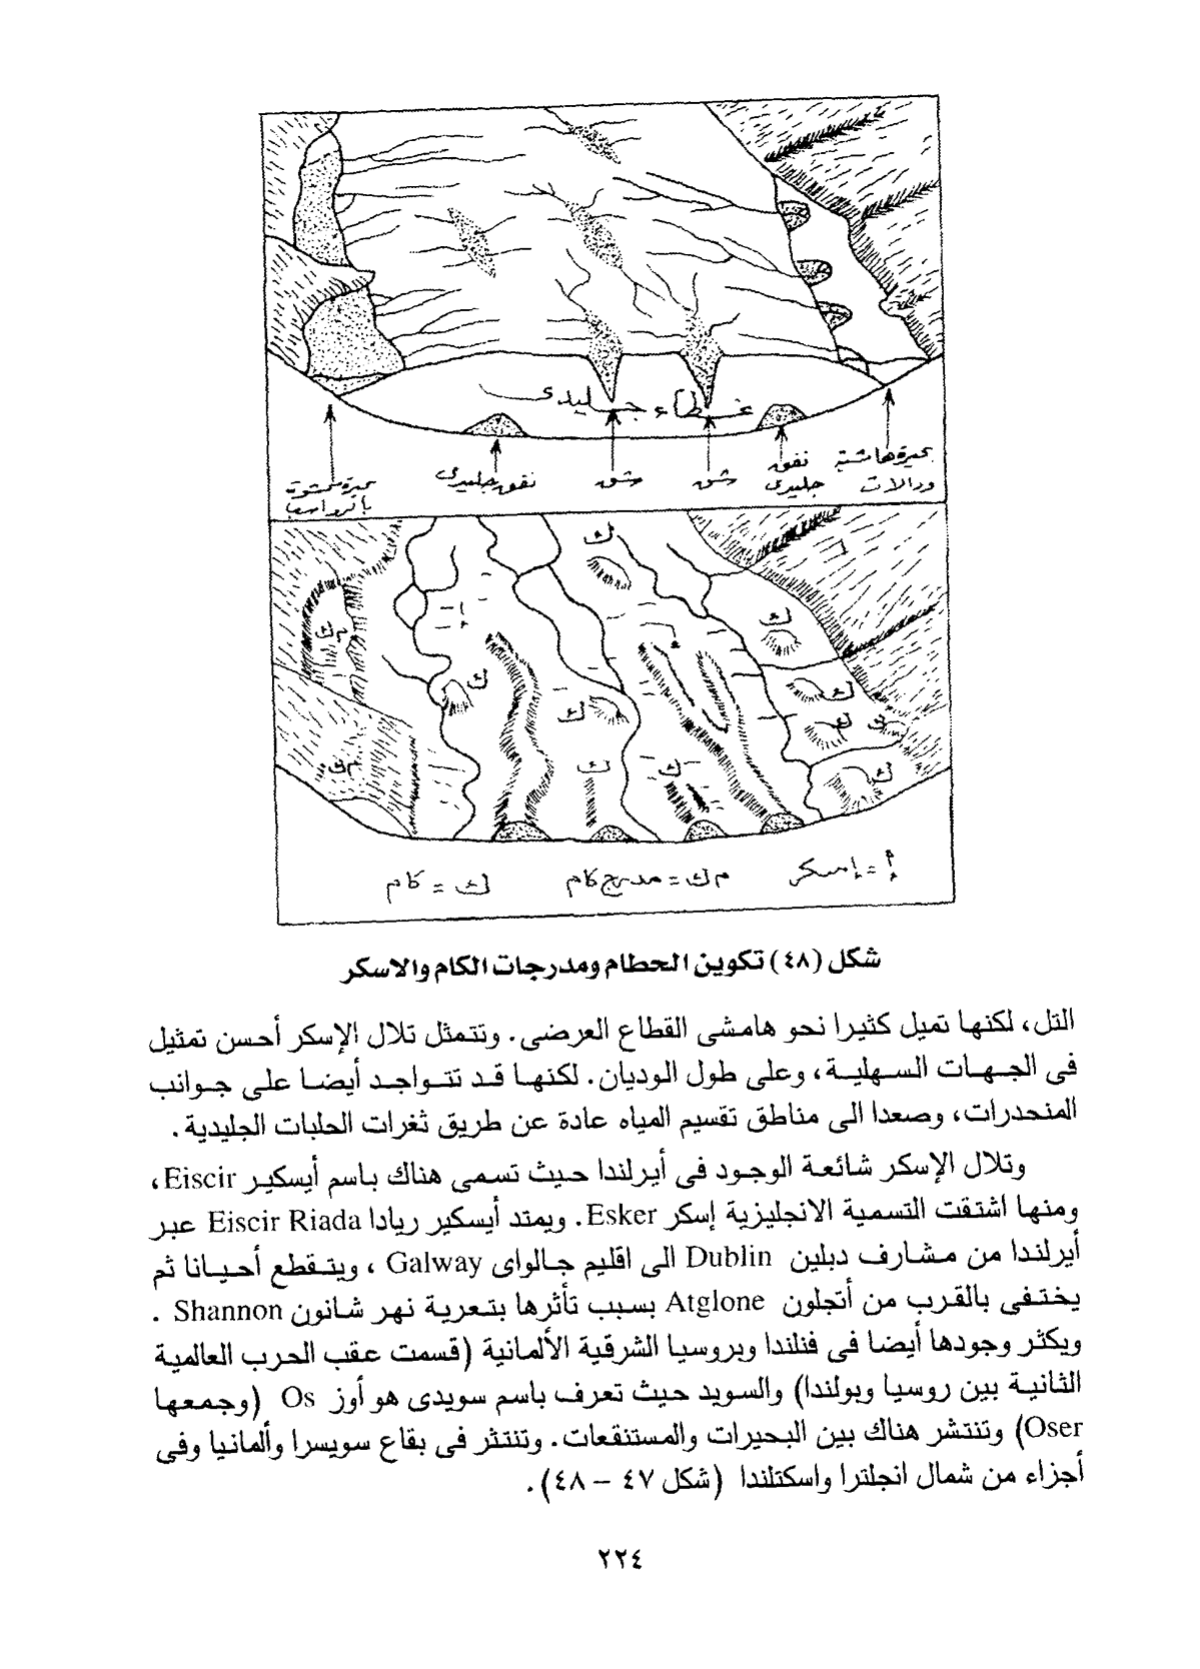 غطاء جليدى
بحيرة هامشية
ودالات
نفق
جليدى
شق
شق
نفق جليدى
بحيرة محشوة
بالرواسب
ك
ك
م ك
ك
ك
ك
ك
ك
ك
ك
ك
م ك
أ = إسكر
م ك = مدرج كام
ك = كام
شكل (٤٨) تكوين الحطام ومدرجات الكام والاسكر
التل، لكنها تميل كثيرا نحو هامشى القطاع العرضى. وتتمثل تلال الإسكر أحسن تمثيل
فى الجهات السهلية، وعلى طول الوديان. لكنها قد تتواجد أيضا على جوانب
المنحدرات، وصعدا الى مناطق تقسيم المياه عادة عن طريق ثغرات الحلبات الجليدية.
وتلال الإسكر شائعة الوجود فى أيرلندا حيث تسمى هناك باسم أيسكير Eiscir،
ومنها اشتقت التسمية الانجليزية إسكر Esker. ويمتد أيسكير ريادا Eiscir Riada عبر
أيرلندا من مشارف دبلين Dublin الى اقليم جالواى Galway، ويتقطع أحيانا ثم
يختفى بالقرب من أتجلون Atglone بسبب تأثرها بتعرية نهر شانون Shannon.
ويكثر وجودها أيضا فى فنلندا وبروسيا الشرقية الألمانية (قسمت عقب الحرب العالمية
الثانية بين روسيا وبولندا) والسويد حيث تعرف باسم سويدى هو أوز Os (وجمعها
Oser) وتنتشر هناك بين البحيرات والمستنقعات. وتنتثر فى بقاع سويسرا وألمانيا وفى
أجزاء من شمال انجلترا واسكتلندا (شكل ٤٧ – ٤٨).
٢٢٤